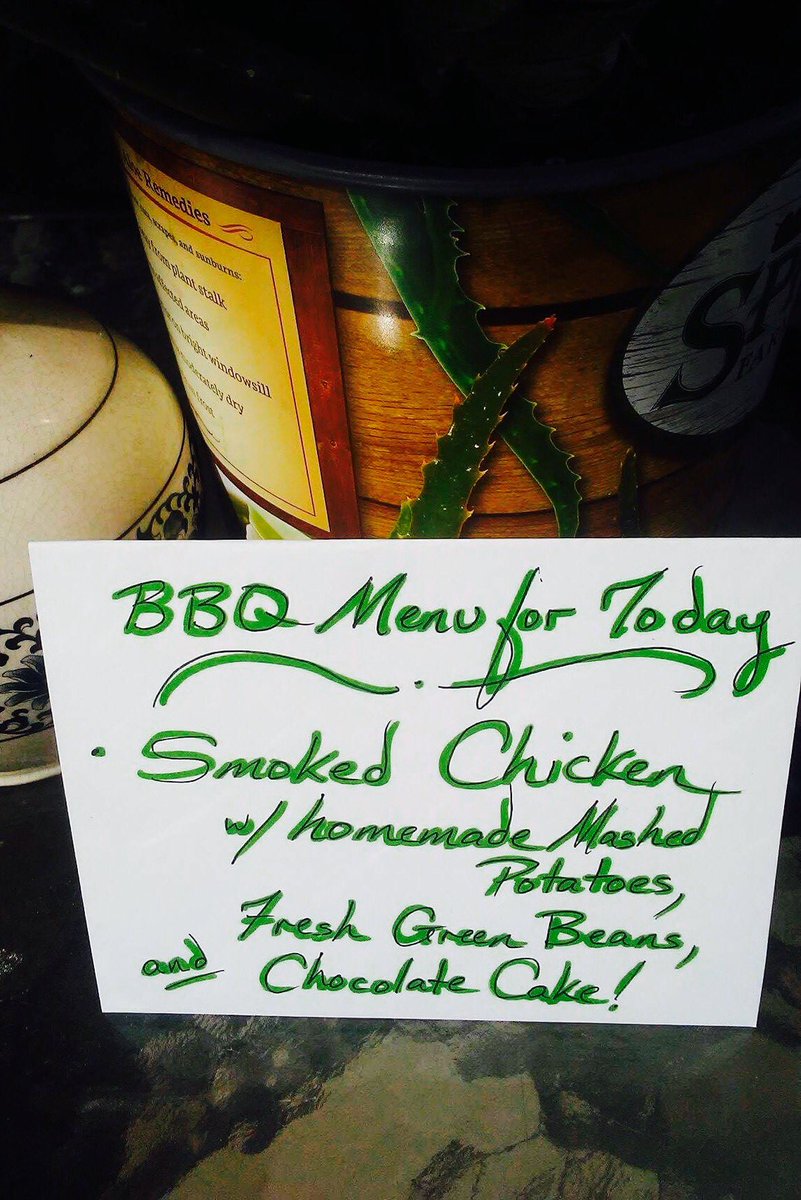 Remedies
scrapes, and sunburns:
from plant stalk
affected areas
bright windowsill
moderately dry
BBQ Menu for Today
• Smoked Chicken
w/ homemade Mashed
Potatoes,
Fresh Green Beans,
and Chocolate Cake!